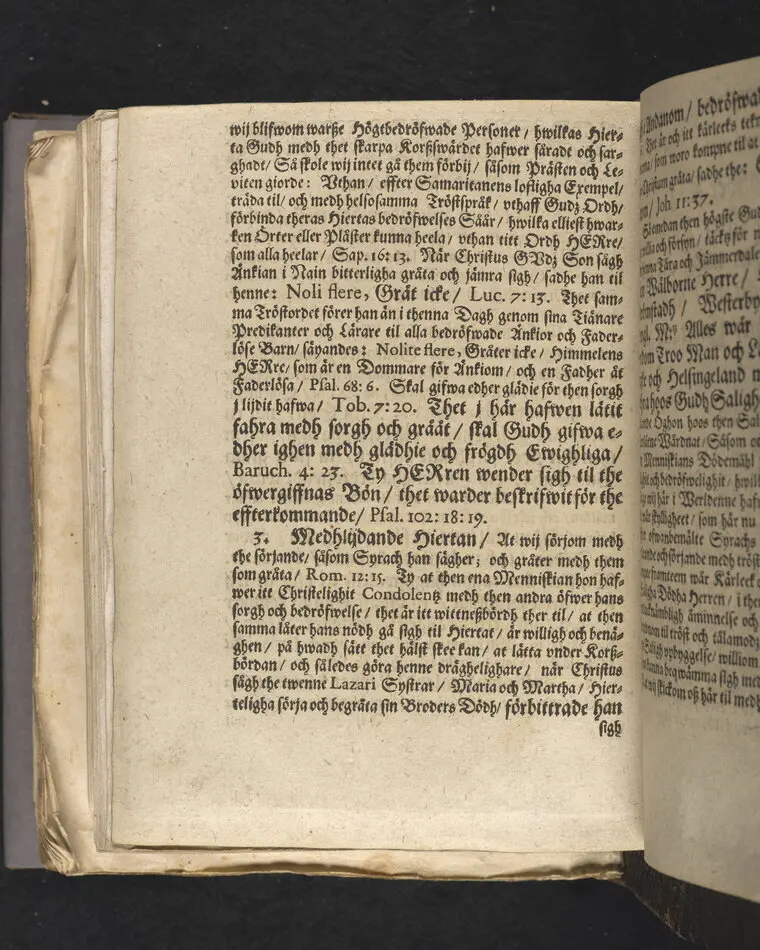 wij blifwom warße Högtbedröfwade Personer / hwilkas Hier-
ta Gudh medh thet skarpa Korßswärdet hafwer såradt och sar-
ghadt / Så skole wij intet gå them förbij / såsom Prästen och Le-
viten giorde: Vthan / effter Samaritanens lofligha Exempel /
träda til / och medh helsosamma Tröstspråk / vthaff Gudz Ordh /
förbinda theras Hiertas bedröfwelses Såår / hwilka elliest hwar-
ken Örter eller Plåster kunna heela / vthan titt Ordh HERre /
som alla heelar / Sap. 16: 13. När Christus GVDz Son sågh
Änkian i Nain bitterligha gråta och jämra sigh / sadhe han til
henne: Noli flere, Gråt icke / Luc. 7: 13. Thet sam-
ma Tröstordet förer han än i thenna Dagh genom sina Tiänare
Predikanter och Lärare til alla bedröfwade Änkior och Fader-
löse Barn / säyandes: Nolite flere, Gråter icke / Himmelens
HERre / som är en Dommare för Änkiom / och en Fadher åt
Faderlösa / Psal. 68: 6. Skal gifwa edher glädie för then sorgh
j lijdit hafwa / Tob. 7: 20. Thet j här hafwen låtit
fahra medh sorgh och grååt / skal Gudh gifwa e-
dher ighen medh glädhie och frögdh Ewighliga /
Baruch. 4: 23. Ty HERren wender sigh til the
öfwergiffnas Bön / thet warder beskrifwit för the
effterkommande / Psal. 102: 18: 19.
3. Medhlijdande Hiertan / At wij sörjom medh
the sörjande / såsom Syrach han sägher; och gråter medh them
som gråta / Rom. 12: 15. Ty at then ena Menniskian hon haf-
wer itt Christelighit Condolentz medh then andra öfwer hans
sorgh och bedröfwelse / thet är itt wittneßbördh ther til / at then
samma låter hans nödh gå sigh til Hiertat / är willigh och benä-
ghen / på hwadh sätt thet hälst skee kan / at lätta vnder Korß-
bördan / och således göra henne dräghelighare / när Christus
sågh the twenne Lazari Systrar / Maria och Martha / Hier-
teligha sörja och begråta sin Broders Dödh / förbittrade han
sigh
Joh. 11: 37.
Wälborne Herre /
Alles wår
Troo Man och
och Helsingeland
hoos Gudh
Öghon hoos then
Menniskians Dödemåhl
wij här i Werldenne
som här nu
Syrachs
och sörjande medh
wår Kärleek
Dödha Herren / i
åminnelse och
til tröst och
vpbyggelse / williom
beqwämma sigh
skickom oß här til medh